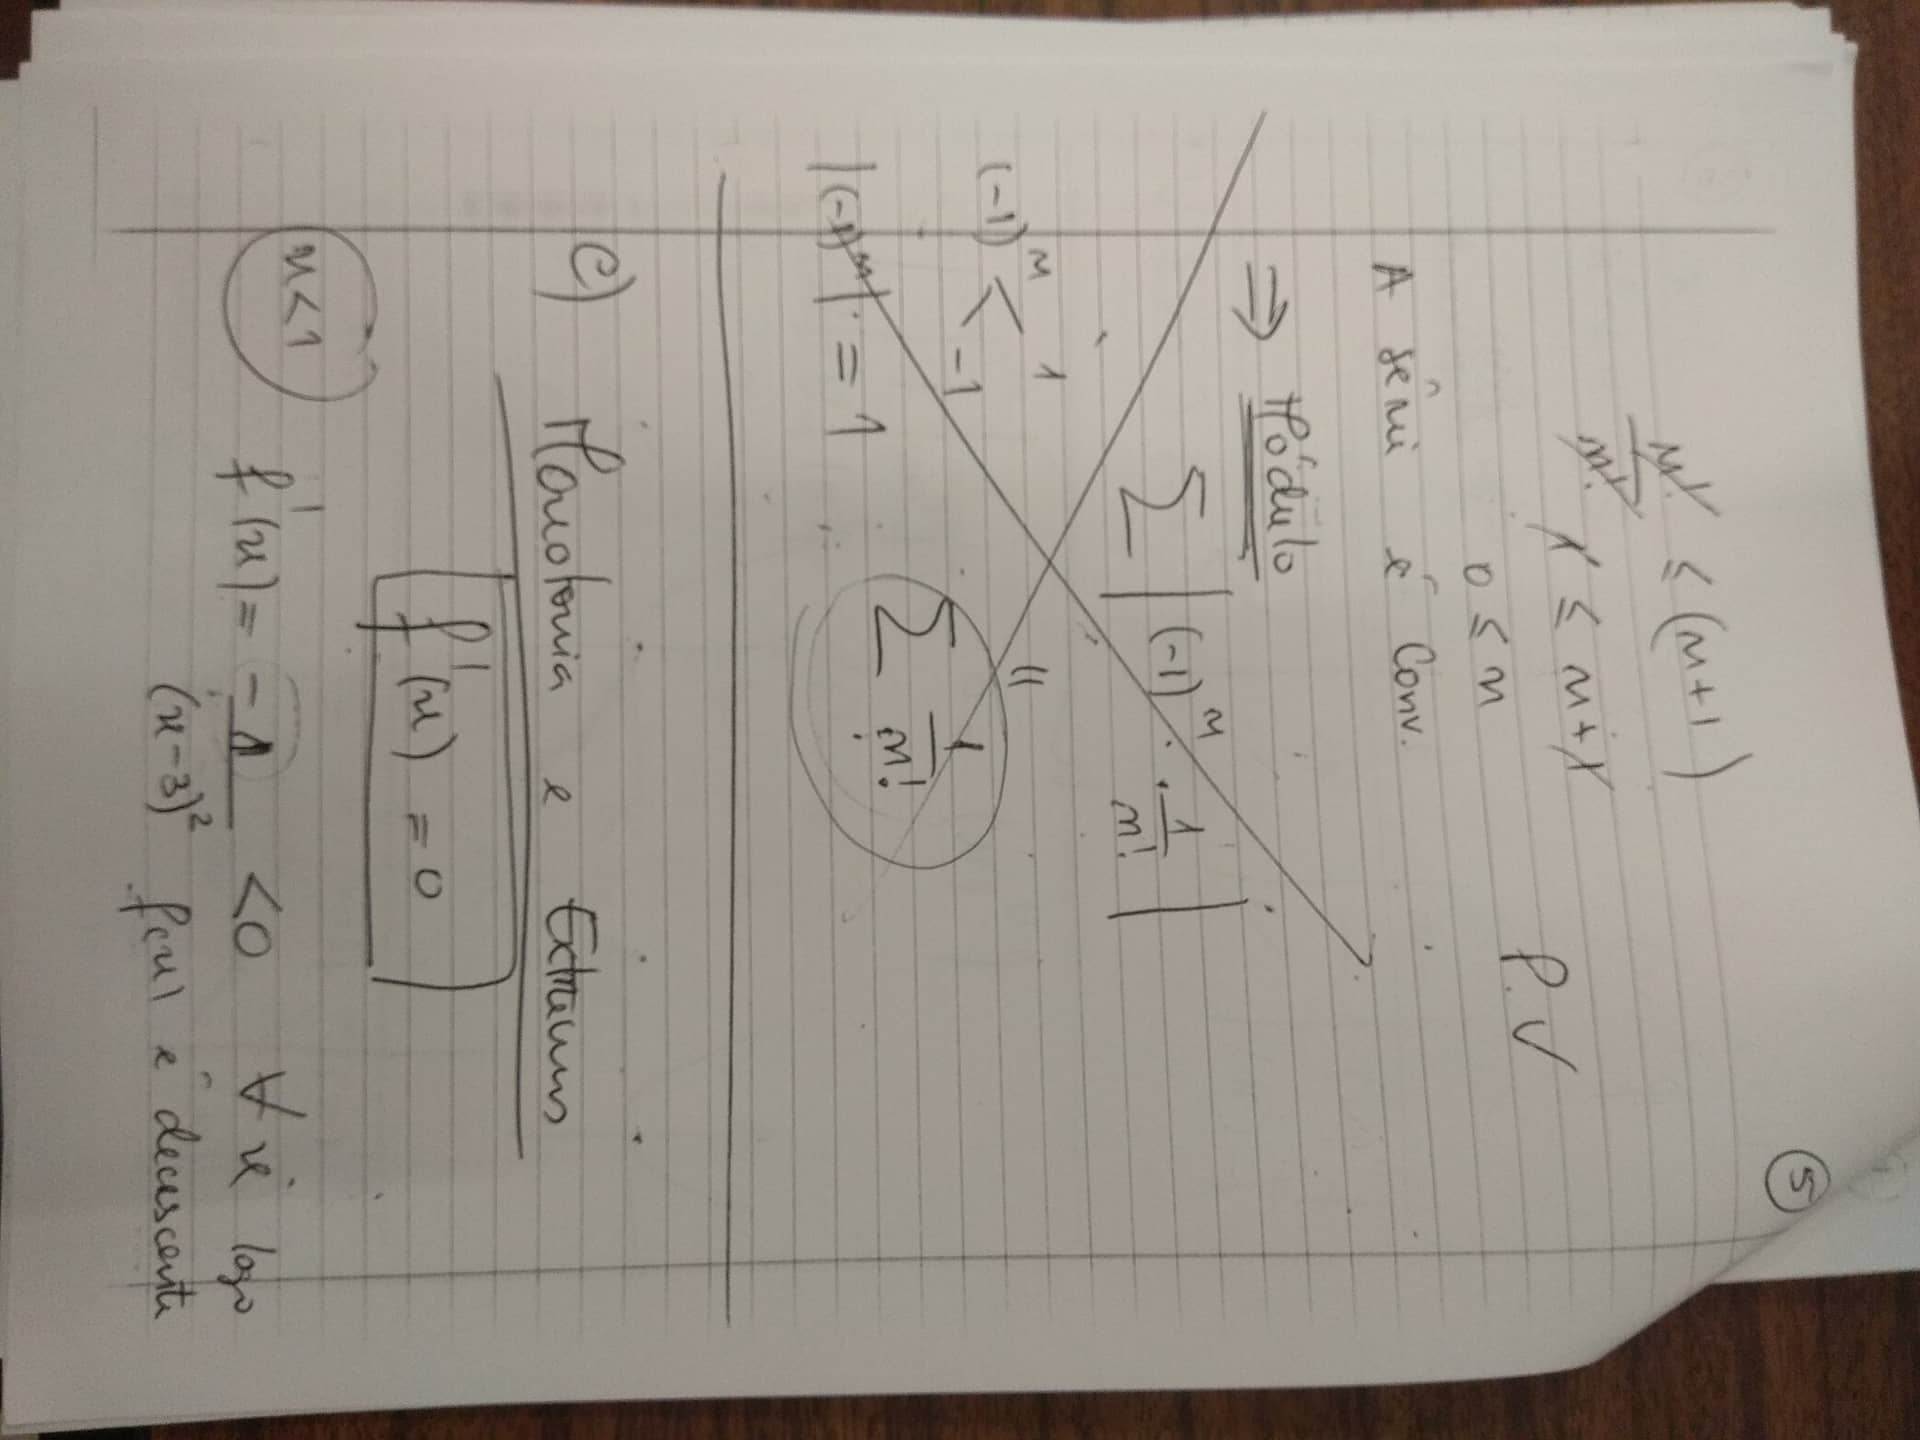 5
n!/n! ≤ (n+1)
1 ≤ n+1
0 ≤ n P.V
A série é Conv.
⇒ Módulo
∑ |(-1)^n · 1/n!|
(-1)^n < 1 -1
=
|(-1)^n| = 1 ∑ 1/n!
c) Monotonia e Extremos
f'(x) = 0
x<1 f'(x) = -1/(x-3)² <0 ∀x logo
f(x) é decrescente